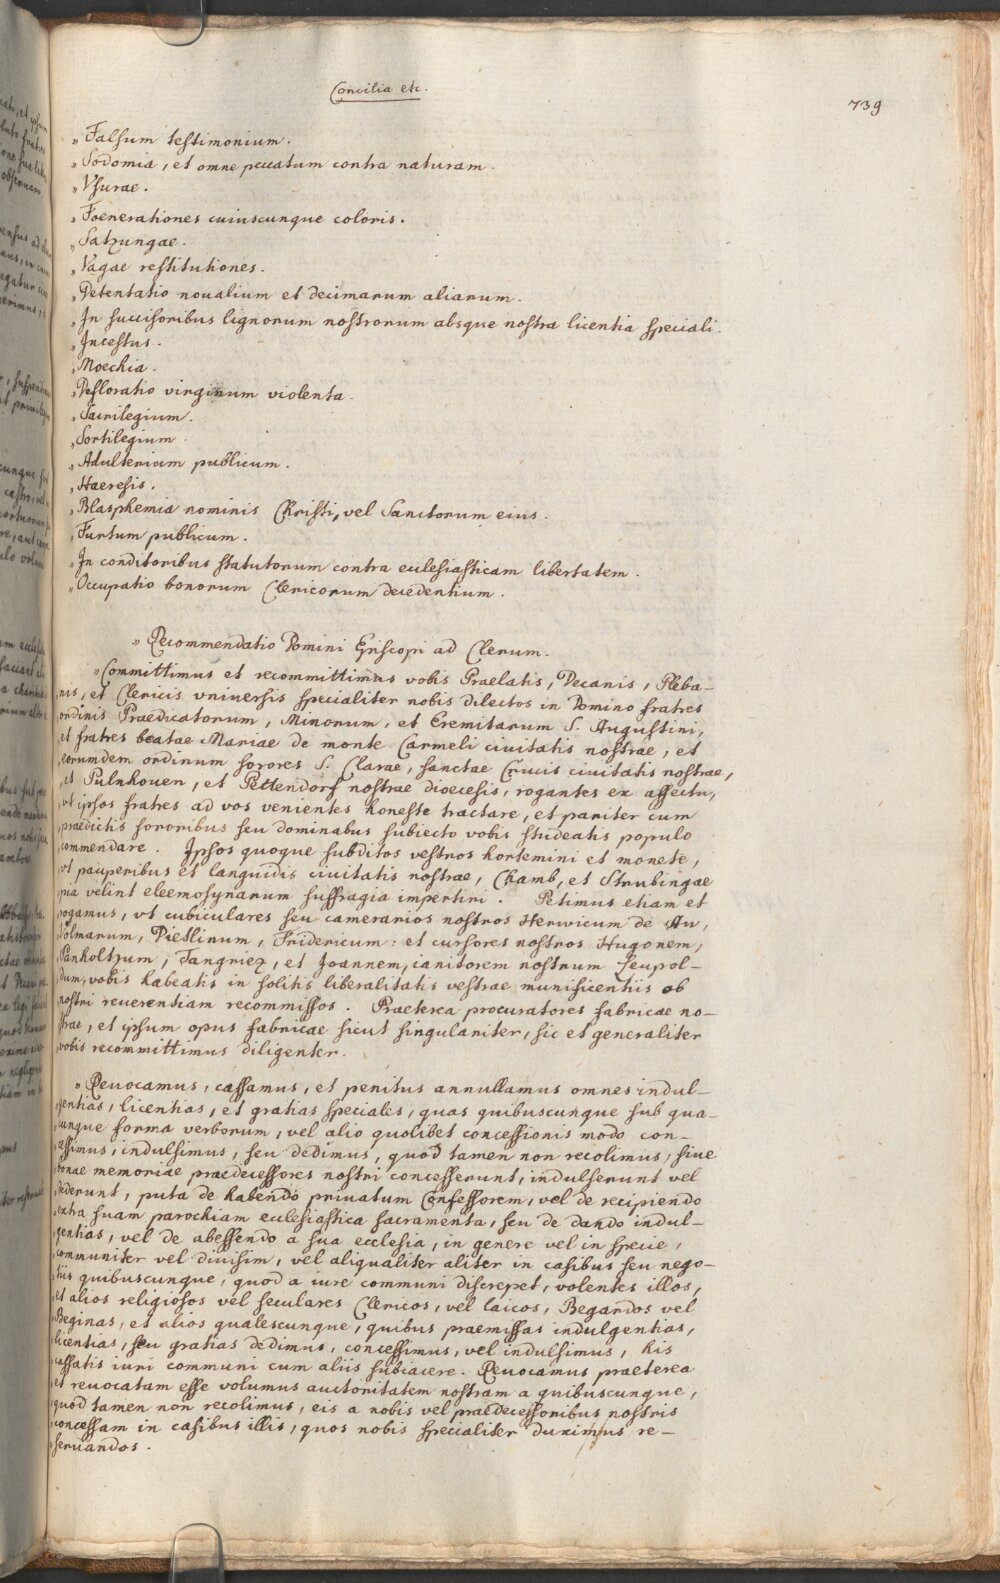 Concilia etc.
739
„Falsum testimonium.
„Sodomia, et omne peccatum contra naturam.
„Vsurae.
„Foenerationes cuiuscunque coloris.
„Satzungae.
„Vagae restitutiones.
„Detentatio noualium et decimarum aliarum.
„In succisoribus lignorum nostrorum absque nostra licentia speciali.
„Incestus.
„Moechia.
„Defloratio virginum violenta.
„Sacrilegium.
„Sortilegium.
„Adulterium publicum.
„Haeresis.
„Blasphemia nominis Christi, vel Sanctorum eius.
„Furtum publicum.
„In conditoribus statutorum contra eulesiasticam libertatem.
„Occupatio bonorum Clericorum decedentium.
„Recommendatio Domini Episcopi ad Clerum.
„Committimus et recommittimus vobis Praelatis, Decanis, Pleba-
nis, et Clericis vniuersis specialiter nobis dilectos in Domino fratres
ordinis Praedicatorum, Minorum, et Eremitarum S. Augustini,
et fratres beatae Mariae de monte Carmeli ciuitatis nostrae, et
eorumdem ordinum sorores S. Clarae, sanctae Crucis ciuitatis nostrae,
et Pulnhouen, et Pettendorf nostrae dioecesis, rogantes ex affectu,
vt ipsos fratres ad vos venientes honeste tractare, et pariter cum
praedictis sororibus seu dominabus subiecto vobis studeatis populo
commendare. Ipsos quoque subditos vestros hortemini et monete,
vt pauperibus et languidis ciuitatis nostrae, Chamb, et Strubingae
pia velint eleemosynarum suffragia impertiri. Petimus etiam et
rogamus, vt cubiculares seu camerarios nostros Herwicum de Au,
Volmarum, Pieslinum, Fridericum: et cursores nostros Hugonem,
Panholtzum, Tangriez, et Joannem, ianitorem nostrum Leupol-
dum, vobis habeatis in solitis liberalitatis vestrae munificentiis ob
nostri reuerentiam recommissos. Praeterea procuratores fabricae no-
strae, et ipsum opus fabricae sicut singulariter, sic et generaliter
vobis recommittimus diligenter.
„Reuocamus, cassamus, et penitus annullamus omnes indul-
gentias, licentias, et gratias speciales, quas quibuscunque sub qua-
cunque forma verborum, vel alio quolibet concessionis modo con-
cessimus, indulsimus, seu dedimus, quod tamen non recolimus, siue
bonae memoriae praedecessores nostri concesserunt, indulserunt vel
dederunt, puta de habendo priuatum Confessorem, vel de recipiendo
extra suam parochiam eulesiastica sacramenta, seu de dando indul-
gentias, vel de abessendo a sua ecclesia, in genere vel in specie,
communiter vel diuisim, vel aliqualiter aliter in casibus seu nego-
tiis quibuscunque, quod a iure communi discrepet, volentes illos,
et alios religiosos vel seculares Clericos, vel laicos, Begardos vel
Beginas, et alios qualescunque, quibus praemissas indulgentias,
licentias, seu gratias dedimus, concessimus, vel indulsimus, his
cassatis iuri communi cum aliis subiacere. Reuocamus praeterea
et reuocatam esse volumus auctoritatem nostram a quibuscunque,
quod tamen non recolimus, eis a nobis vel praedecessoribus nostris
concessam in casibus illis, quos nobis specialiter duximus re-
seruandos.